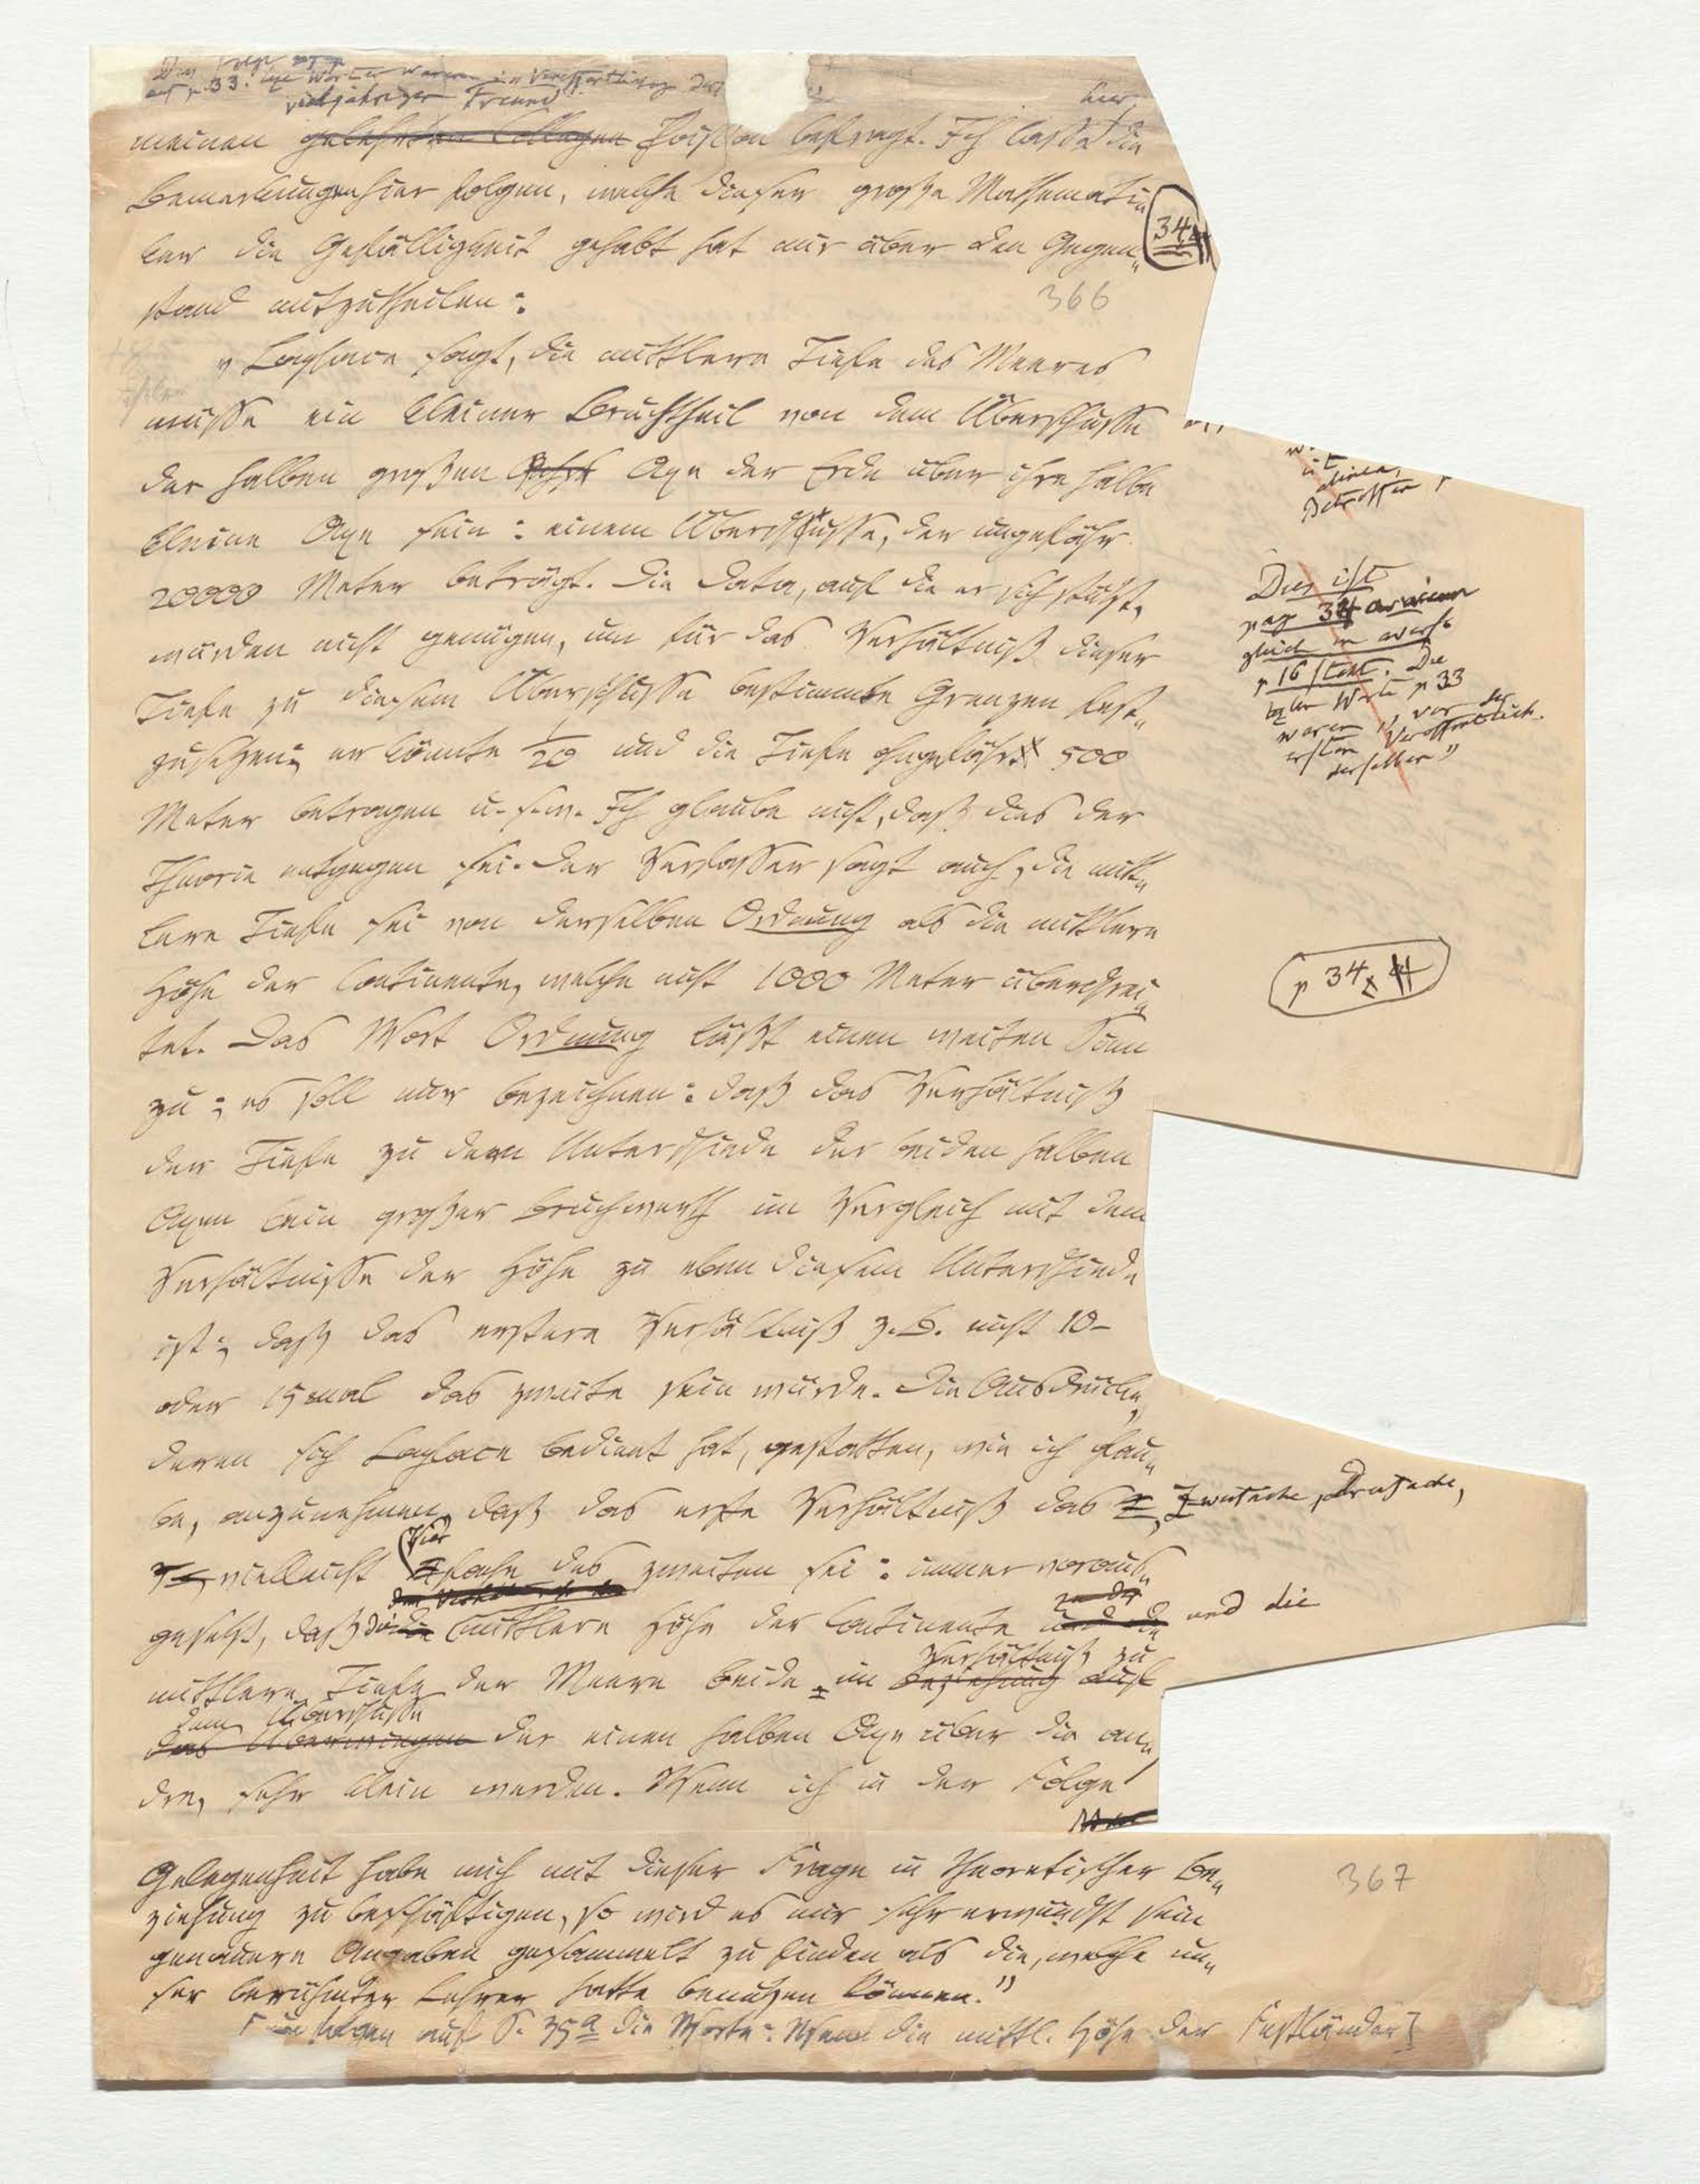 Dies folgt
auf p. 33. letzte Worte waren: „Veröffentlichung
vieljähriger Freund
hier,
meinen gelehrten Collegen Poisson befragt. Ich lasse die
Bemerkungen hier folgen, welche dieser große Mathemati⸗
ker die Gefälligkeit gehabt hat mir über den Gegen⸗
stand mitzutheilen:
34
366
„Laplace sagt, die mittlere Tiefe des Meeres
müsse ein kleiner Bruchtheil von dem Überschusse
der halben großen Axe der Erde über ihre halbe
kleine Axe sein: einem Überschusse, der ungefähr
20000 Meter beträgt. Die Data, auf die er sich stützt,
würden nicht genügen, um für das Verhältniß dieser
Tiefe zu diesem Überschusse bestimmte Grenzen fest⸗
zusetzen; er könnte 1/20 und die Tiefe ohngefähr 500
Meter betragen u. s. w. Ich glaube nicht, daß dies der
Theorie entgegen sei. Der Verfasser sagt auch, die mitt⸗
lere Tiefe sei von derselben Ordnung als die mittlere
Höhe der Continente, welche nicht 1000 Meter überschrei⸗
tet. Das Wort Ordnung läßt einen weiten Sinn
zu; es soll nur bezeichnen: daß das Verhältniß
der Tiefe zu dem Unterschiede der beiden halben
Axen kein großer Bruchwerth im Vergleich mit dem
Verhältnisse der Höhe zu eben diesem Unterschiede
ist; daß das erstere Verhältniß z. B. nicht 10-
oder 15mal das zweite sein würde. Die Ausdrücke,
deren sich Laplace bedient hat, gestatten, wie ich glau⸗
be, anzunehmen, daß das erste Verhältniß das Zweifache, Dreifache,
vielleicht Vierfache des zweiten sei: immer voraus⸗
gesetzt, daß die mittlere Höhe der Continente und die
mittlere Tiefe der Meere beide, im Verhältniß zu
Beziehung auf
dem Überschusse
das Überwiegen der einen halben Axe über die an⸗
dre, sehr klein werden. Wenn ich in der Folge
Gelegenheit habe mich mit dieser Frage in theoretischer Be⸗
ziehung zu beschäftigen, so wird es mir sehr erwünscht sein
genauere Angaben gesammelt zu finden als die, welche un⸗
ser berühmter Lehrer hatte benutzen können.“
folgen auf S. 35a die Worte: Wenn die mittl. Höhe der Festländer]
367
Dies ist
pag 34
gleich
p 16 statt. Die
letzten Worte p 33
waren „vor der
ersten Veröffentlich.
derselben“
p 34